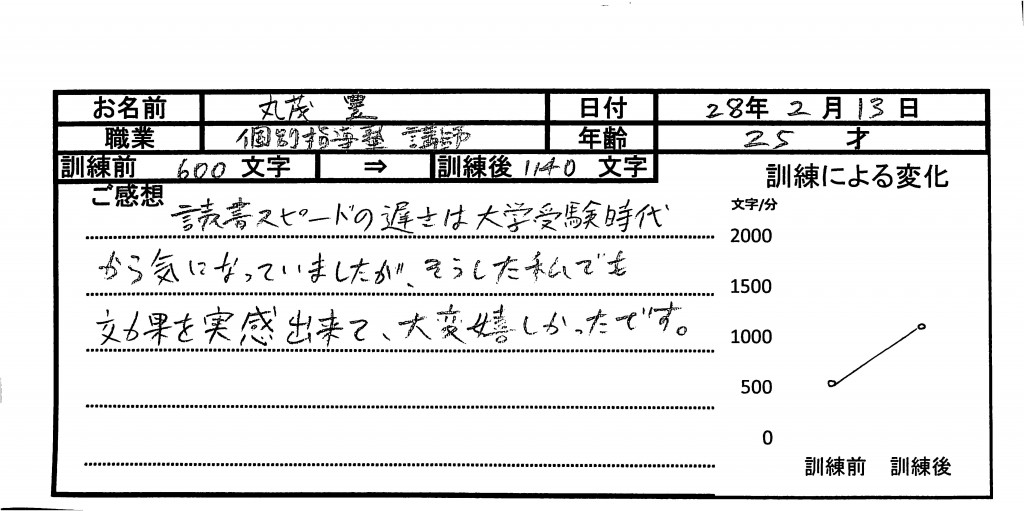 お名前 丸茂 豊 日付 28年 2月 13日
職業 個別指導塾 講師 年齢 25 才
訓練前 600 文字 ⇒ 訓練後 1140 文字 訓練による変化
ご感想
読書スピードの遅さは大学受験時代
から気になっていましたが、そうした私でも
効果を実感出来て、大変嬉しかったです。
文字/分
2000
1500
1000
500
0
訓練前 訓練後